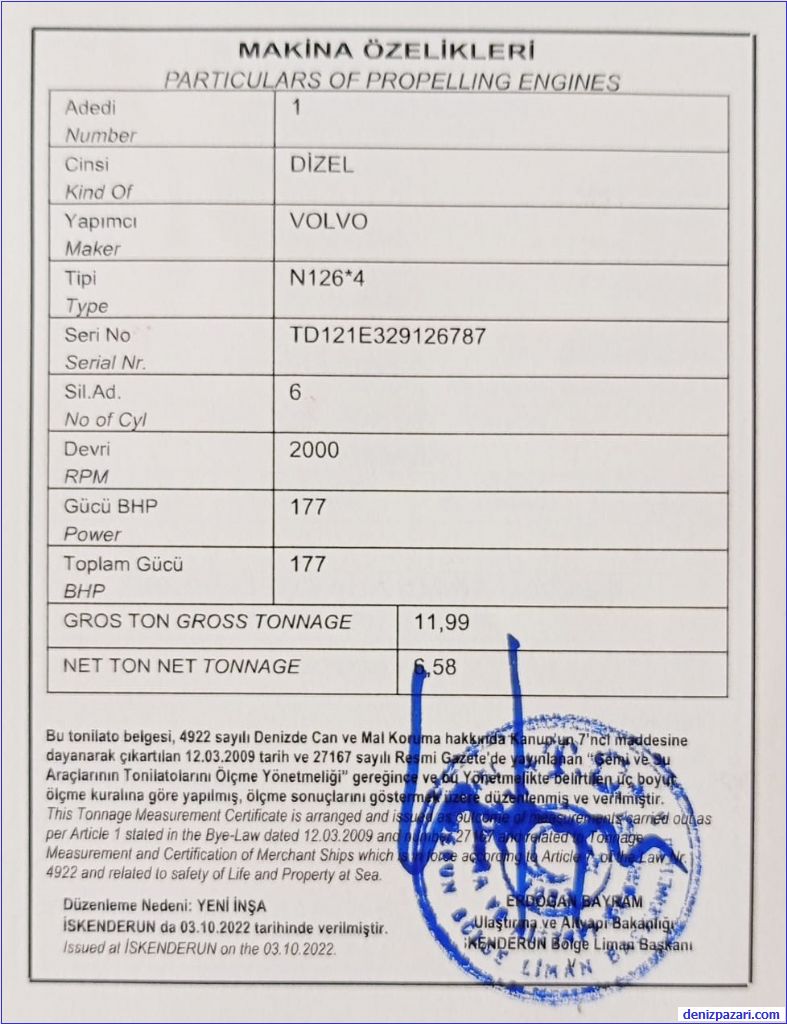 MAKİNA ÖZELİKLERİ
PARTICULARS OF PROPELLING ENGINES
Adedi 1
Number
Cinsi DİZEL
Kind Of
Yapımcı VOLVO
Maker
Tipi N126*4
Type
Seri No TD121E329126787
Serial Nr.
Sil.Ad. 6
No of Cyl
Devri 2000
RPM
Gücü BHP 177
Power
Toplam Gücü 177
BHP
GROS TON GROSS TONNAGE 11,99
NET TON NET TONNAGE 6,58
Bu tonilato belgesi, 4922 sayılı Denizde Can ve Mal Koruma hakkında Kanun'un 7'nci maddesine
dayanarak çıkartılan 12.03.2009 tarih ve 27167 sayılı Resmi Gazete'de yayınlanan "Gemi ve Su
Araçlarının Tonilatolarını Ölçme Yönetmeliği" gereğince ve bu Yönetmelikte belirtilen üç boyut
ölçme kuralına göre yapılmış, ölçme sonuçlarını göstermek üzere düzenlenmiş ve verilmiştir.
This Tonnage Measurement Certificate is arranged and issued as outcome of measurements carried out as
per Article 1 stated in the Bye-Law dated 12.03.2009 and number 27167 and related to Tonnage
Measurement and Certification of Merchant Ships which is in force according to Article 7 of the Law Nr.
4922 and related to safety of Life and Property at Sea.
Düzenleme Nedeni: YENİ İNŞA
ERDOĞAN BAYRAM
İSKENDERUN da 03.10.2022 tarihinde verilmiştir.
Ulaştırma ve Altyapı Bakanlığı
Issued at İSKENDERUN on the 03.10.2022.
İKENDERUN Bölge Liman Başkanı
BÖLGE LİMAN
denizpazari.com